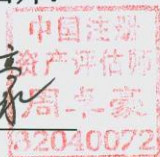 中国注册
资产评估师
周卓豪
32040072